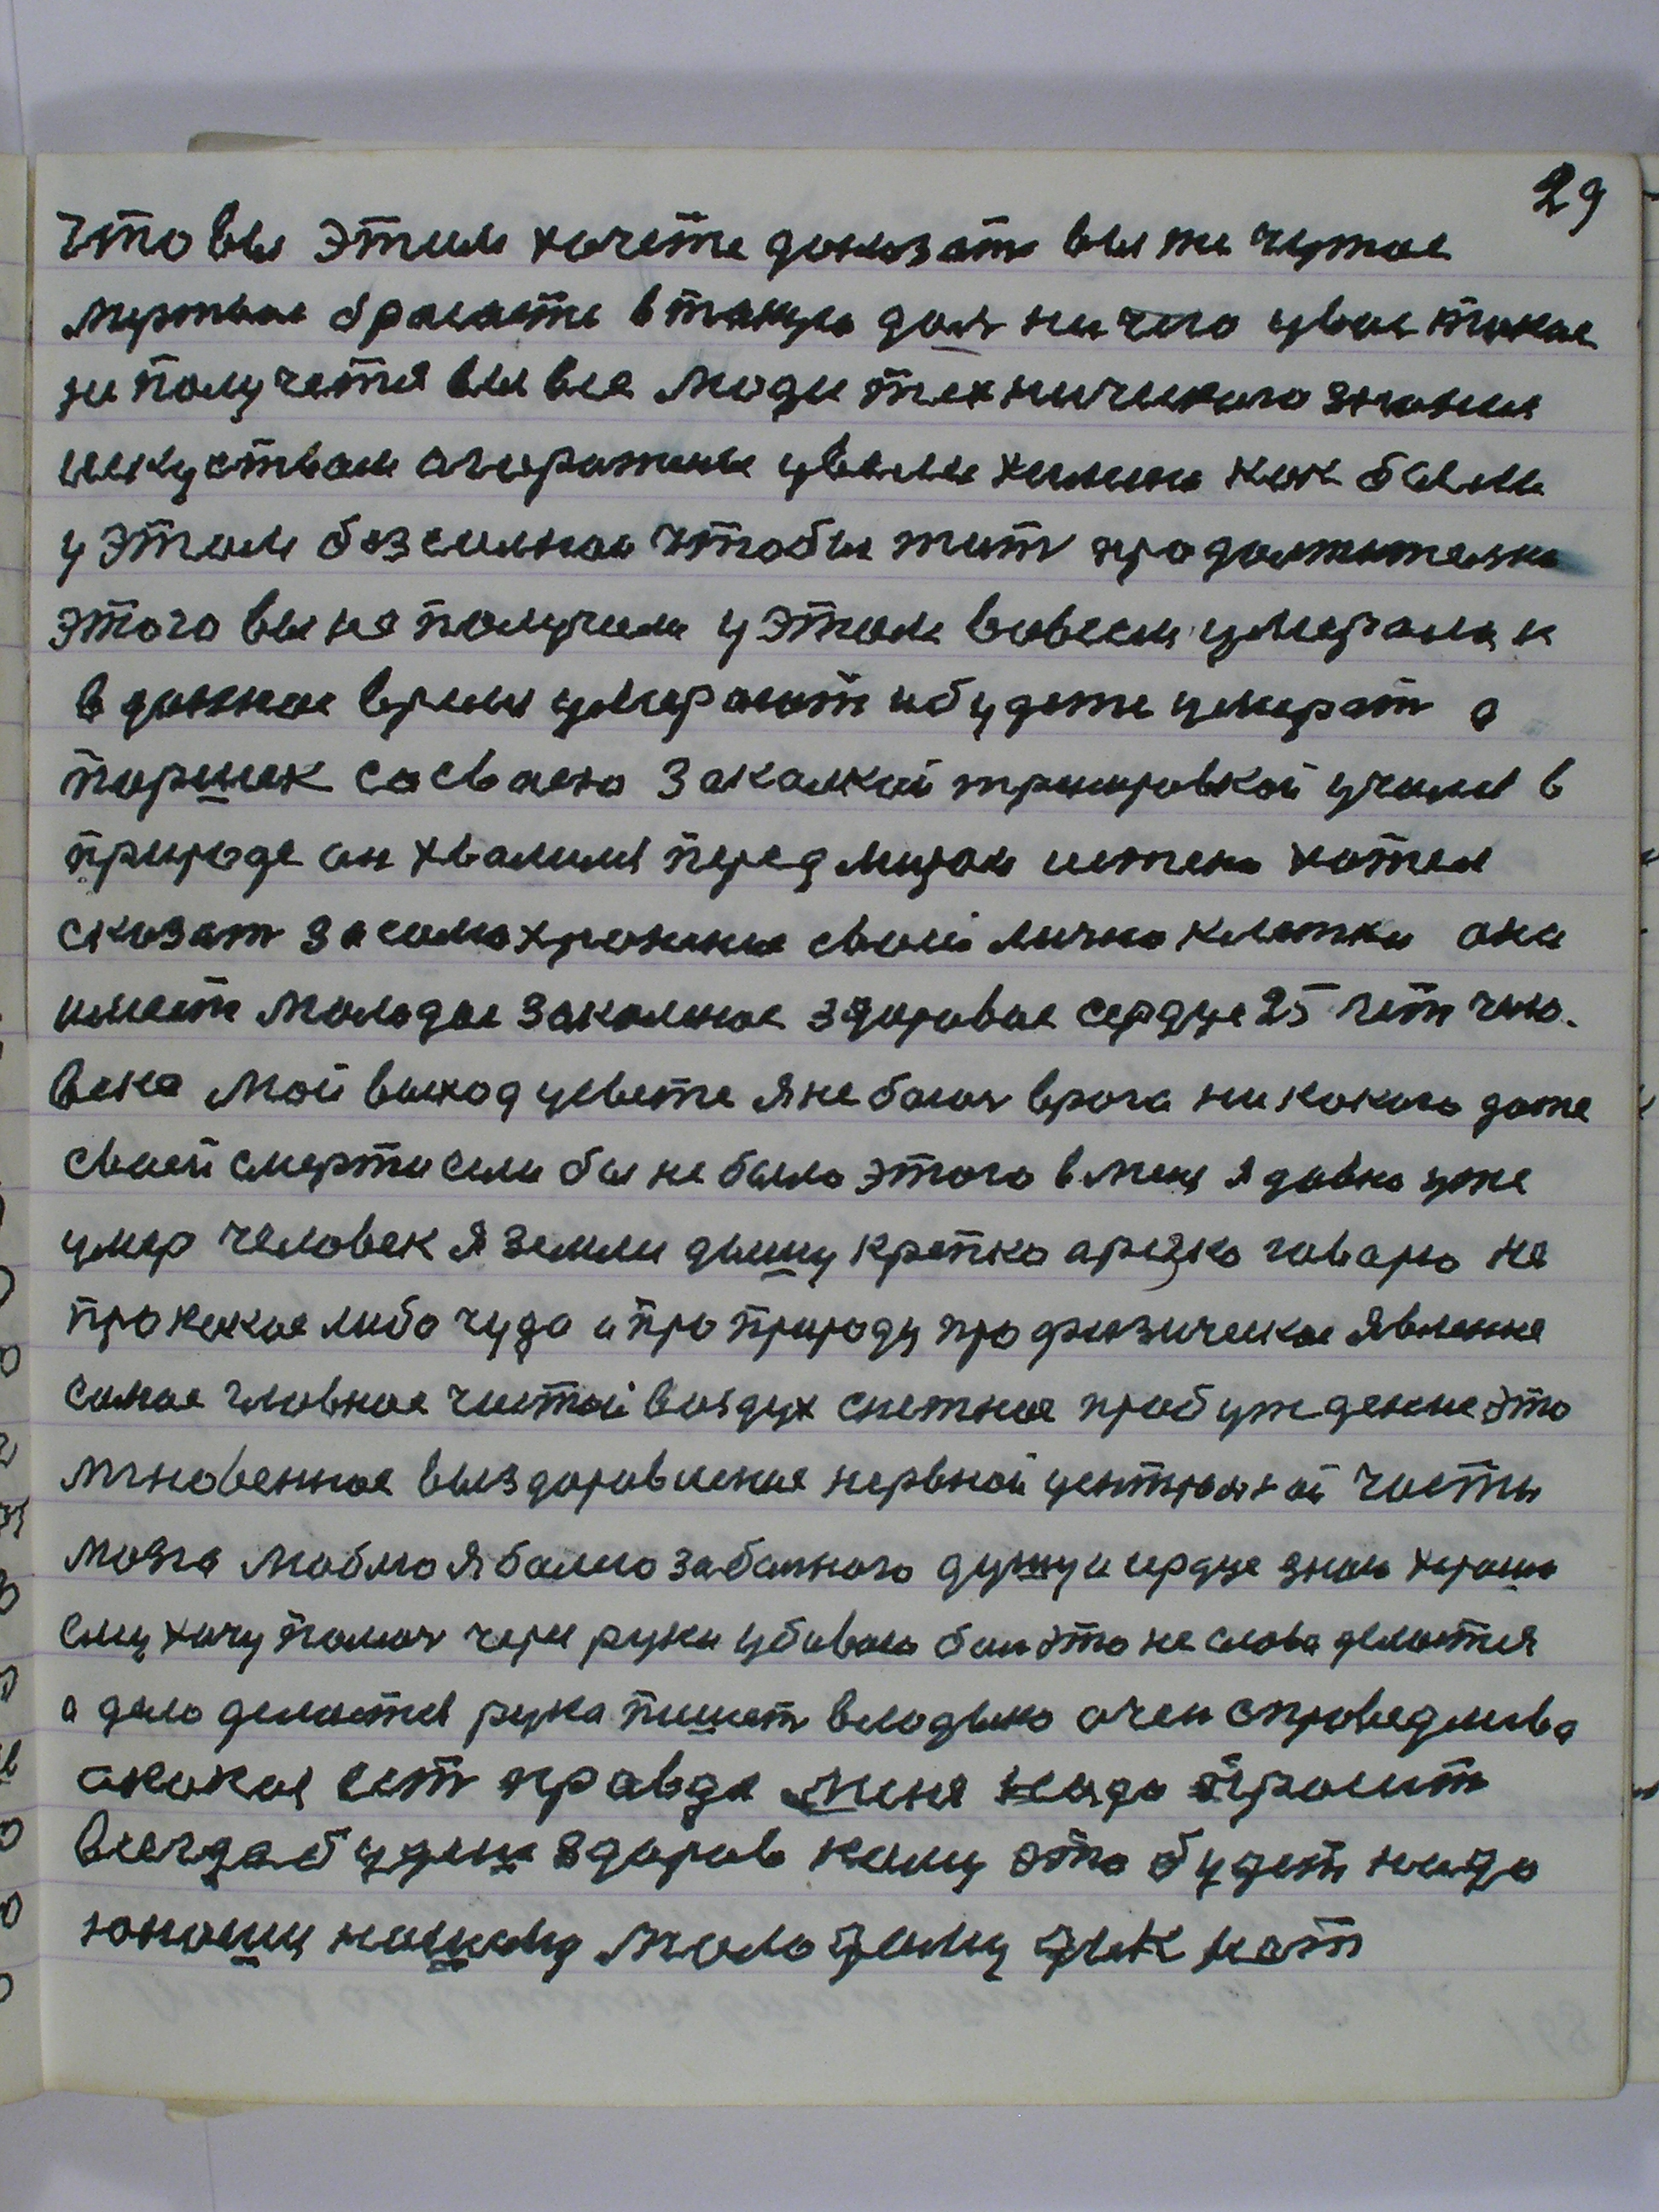 29
что вы этим хочете доказать вы же чужое
мертвое бросаете в такую даль ничего у вас такое
не получется вы все люди техничиского знание
искуством огорожены у вас химие как были
у этом безсильны чтобы жит продолжително
этого вы не получили у этом вовсем умерали и
в данное время умерают и будете умерат а
паршек со своею закалкой тринировкой учился в
природе он хвалился перед миром истено хотел
сказат за самохронение своей лично клетки они
имеет молодое закалное здоровое сердце 25 лет чило-
века мой выход у свете я не боюсь врага никокого даже
своей смерти если бы не было этого в меня я давно уже
умер человек я земли дышу крепко а резко говарю не
про какое либо чудо а про природу про физическое явление
самое главное чистый воздух снежное пробуждение это
мгновенное выздоровление нервной центральной части
мозга люблю я болно заболного душу и сердце знаю хорошо
ему хочу помоч через руки убиваю бол это не слова делаются
а дело делается рука пишет владыко очен справедливо
а кокая ест правда меня надо просит
всегда будеш здоров каму это будет надо
юношу нашему молодому дик нет